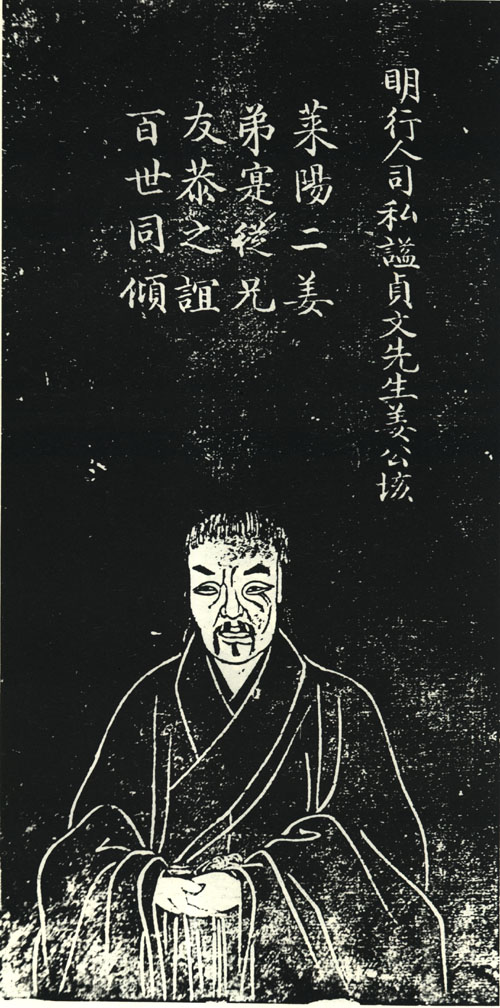 明行人司私謚貞文先生姜公垓
萊陽二姜
弟寔從兄
友恭之誼
百世同傾